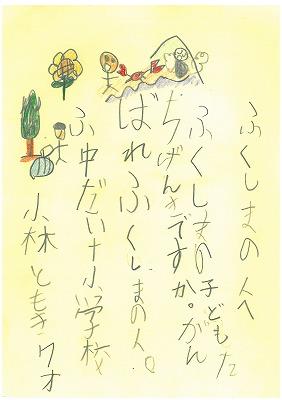 ふくしまの人へ
ふくしまの子どもた
ちげんきですか。がん
ばれふくしまの人。
ふ中だい十小学校
小林ともき 7才